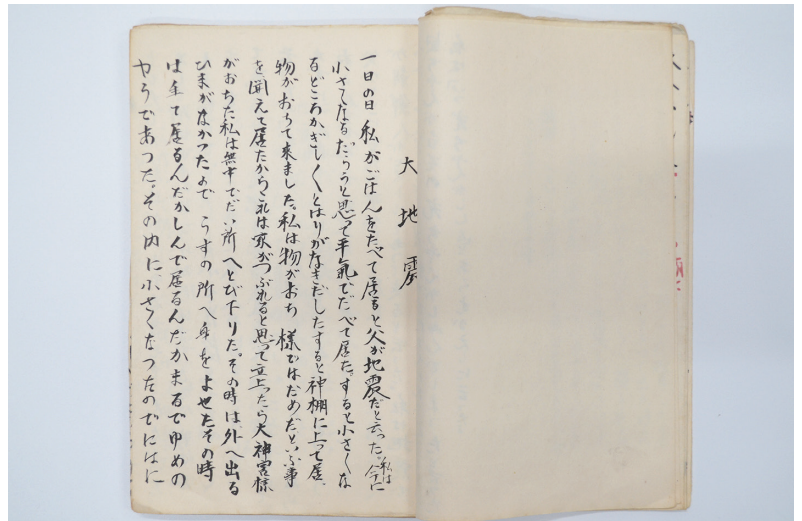 大地震
一日の日私がごはんをたべて居ると父が地震だと云つた。私は今に
小さくなるだらうと思つて平氣でたべて居た。すると小さくな
るどころかぎし〳〵とはりがなきだしたすると神棚に上つて居
物がおちて来ました。私は物がおち様ではだめだといふ事
を聞えて居たからこれは家がつぶれると思つて立上つたら大神宮様
がおちた私は無中でだい所へとび下りた。その時は外へ出る
ひまがなかつたので うすの所へ身をよせたその時
は生て居るんだかしんで居るんだかまるでゆめの
やうであつた。その内に小さくなつたのでにはに